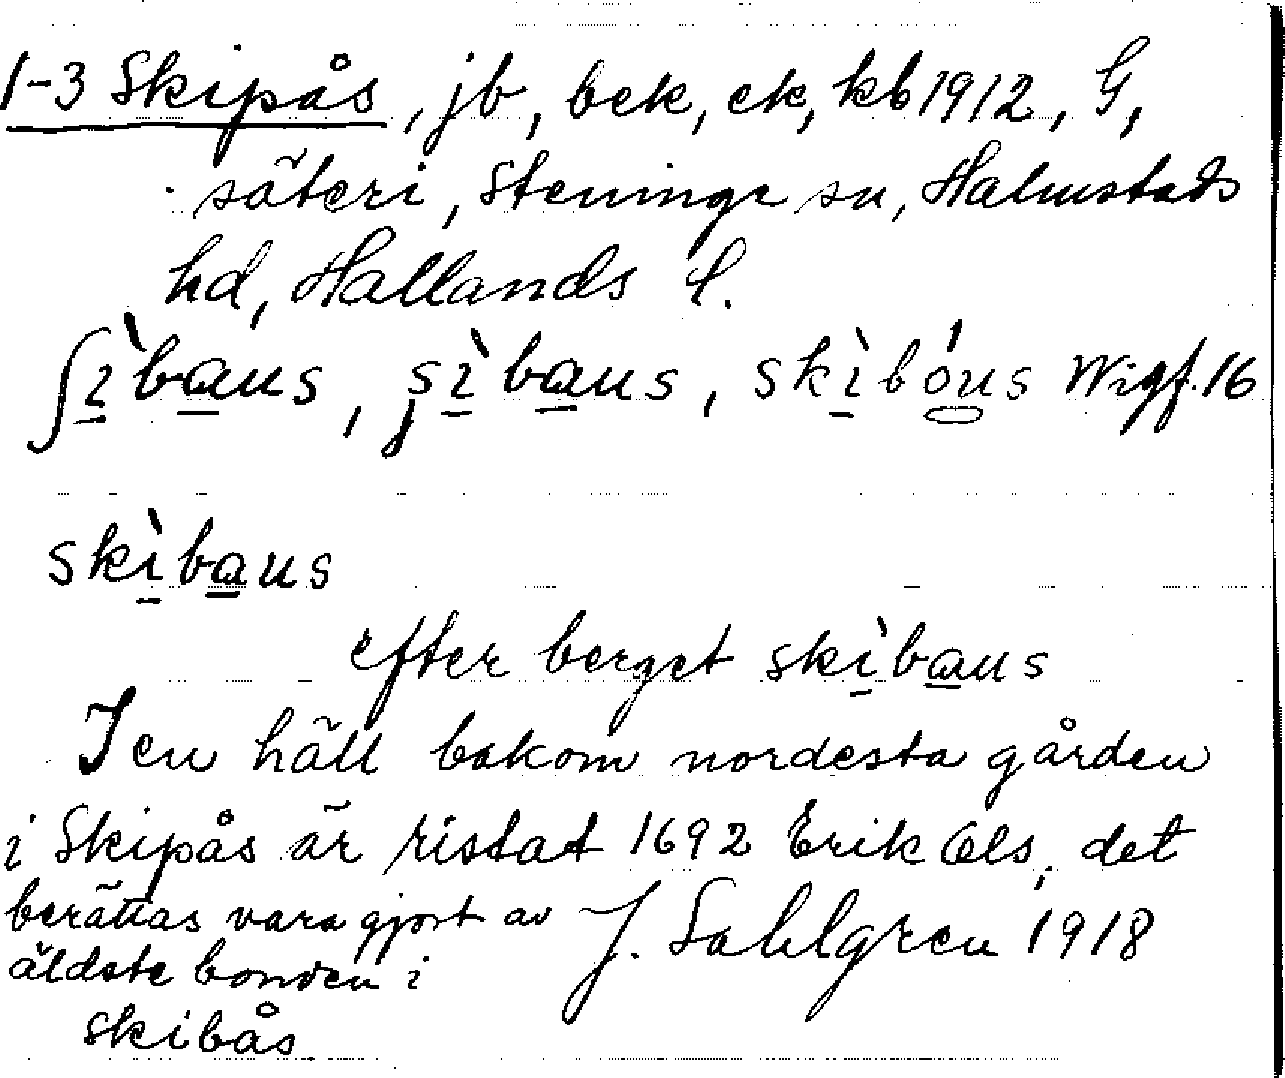 1-3 Skipås, jb, bek, ek, kb 1912, G,
säteri, Steninge sn, Halmstads
hd, Hallands l.
ʃı̱̀ba̱us, şı̱̀ba̱us, skı̱̀bóus Wigf. 16
skı̱̀ba̱us
efter berget skı̱̀ba̱us
I en häll bakom nordesta gården
i Skipås är ristat 1692 Erik Ols, det
berättas vara gjort av J. Sahlgren 1918
äldste bonden i
skibås